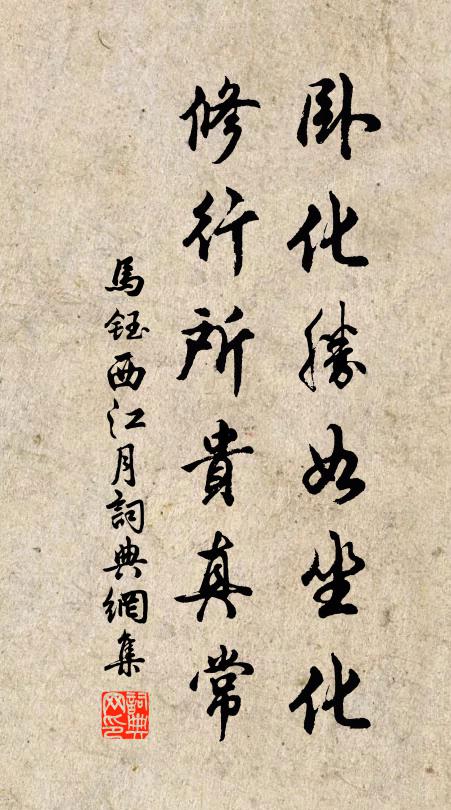 臥化勝如坐化
修行所貴真常
馬鈺西江月詞典網集
詞典网印